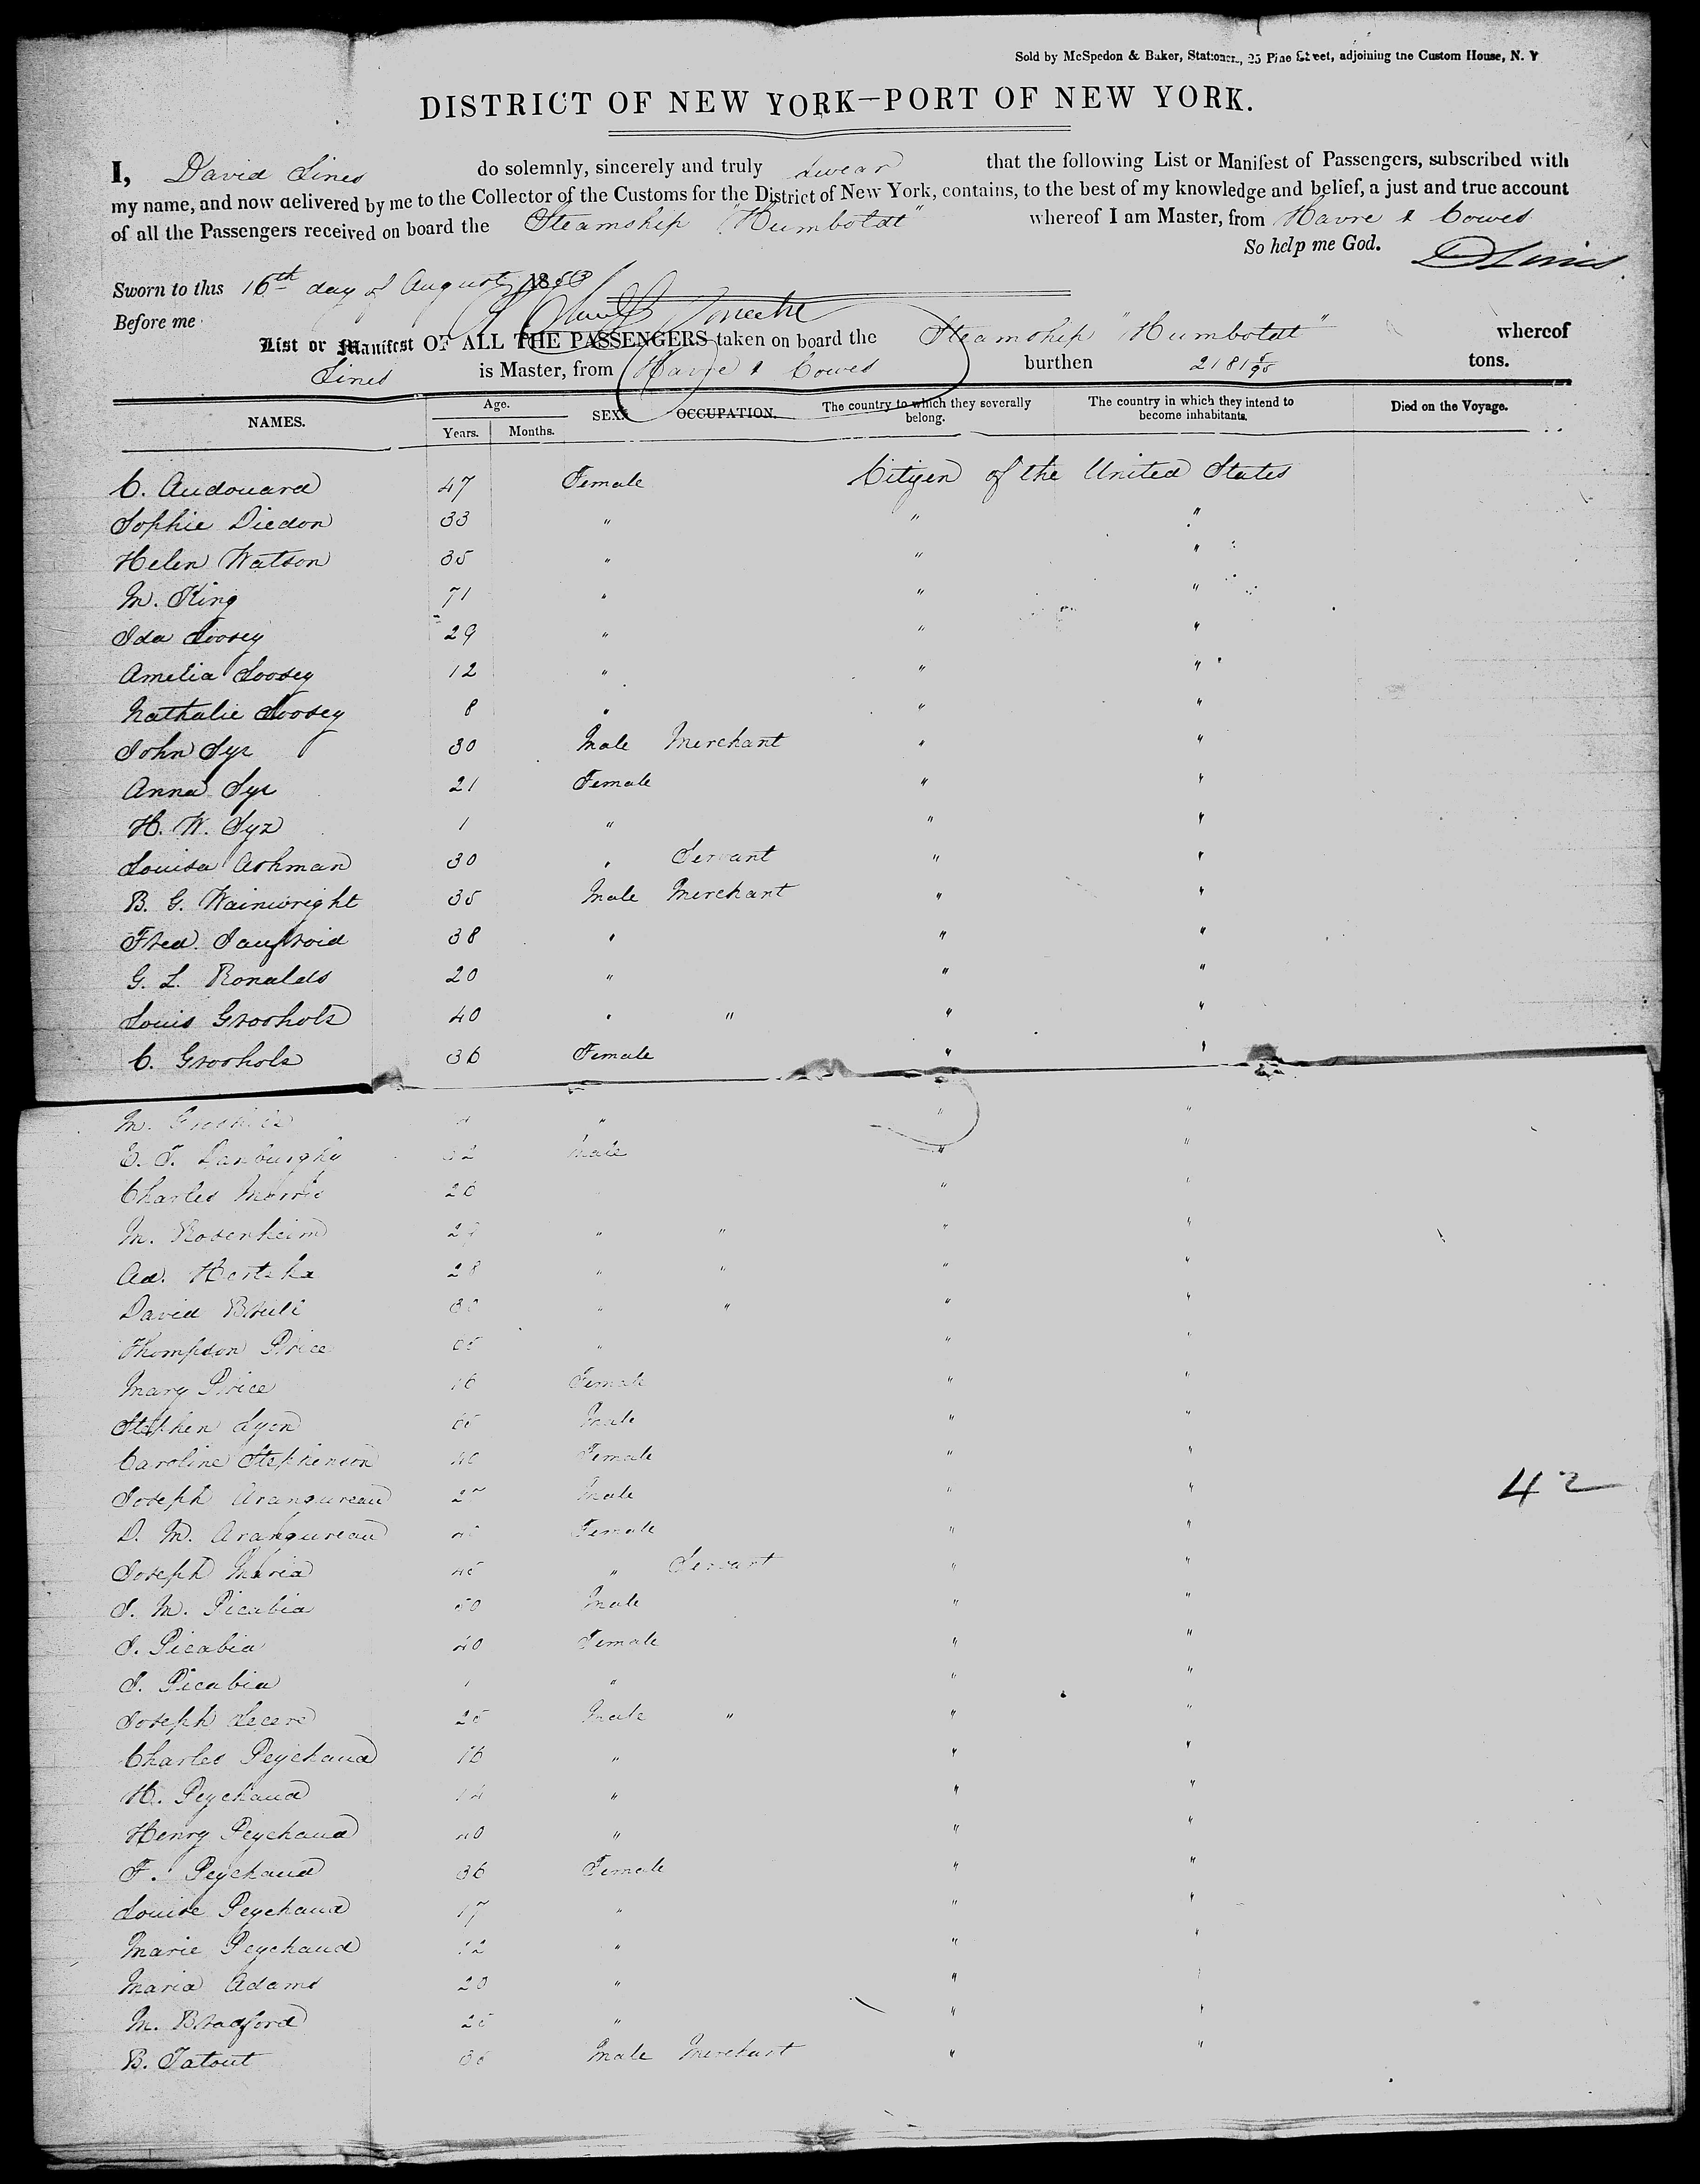 Sold by McSpedon & Baker, Stationers, 25 Pine Street, adjoining the Custom House, N. Y
DISTRICT OF NEW YORK—PORT OF NEW YORK.
I, David Lines do solemnly, sincerely and truly swear that the following List or Manifest of Passengers, subscribed with
my name, and now delivered by me to the Collector of the Customs for the District of New York, contains, to the best of my knowledge and belief, a just and true account
of all the Passengers received on board the Steamship "Humboldt" whereof I am Master, from Havre & Cowes
So help me God. D Lines
Sworn to this 16th day of August 1853
Before me
List or Manifest OF ALL THE PASSENGERS taken on board the Steamship "Humboldt" whereof
Lines is Master, from Havre & Cowes burthen 2181 tons.
NAMES. Age. Years. Months. SEX. OCCUPATION. The country to which they severally belong. The country in which they intend to become inhabitants. Died on the Voyage.
C. Audouard 47 Female Citizen of the United States
Sophie Diedon 33 " " "
Helen Watson 35 " " "
M. King 71 " " "
Ida Loosey 29 " " "
Amelia Loosey 12 " " "
Nathalie Loosey 8 " " "
John Syz 30 Male Merchant " "
Anna Syz 21 Female " "
H. W. Syz 1 " " "
Louisa Ashman 30 " Servant " "
B. G. Wainwright 35 Male Merchant " "
Fred. 38 " " "
G. L. Ronalds 20 " " "
Louis Grosholz 40 " " " "
C. Grosholz 36 Female " "
M. Grosholz " " "
E. T. Male " "
Charles Morris 26 " "
M. Rosenheim 29 " " " "
Ad. 28 " " " "
David 30 " " " "
Thompson Price " " "
Mary Price 16 Female " "
Stephen Lyon Male " "
Caroline Stephenson 40 Female " "
Joseph Arangureau Male " "
D. M. Arangureau Female " "
Joseph Maria 45 " Servant " "
J. M. Picabia 50 Male " "
J. Picabia 40 Female " "
J. Picabia 1 " " "
Joseph 25 Male " " "
Charles Peychaud 16 " " "
H. Peychaud 14 " " "
Henry Peychaud 40 " " "
F. Peychaud 36 Female " "
Louise Peychaud 17 " " "
Marie Peychaud 12 " " "
Maria Adams 20 " " "
M. Bradford 25 " " "
B. Tatout 35 Male Merchant " "
42